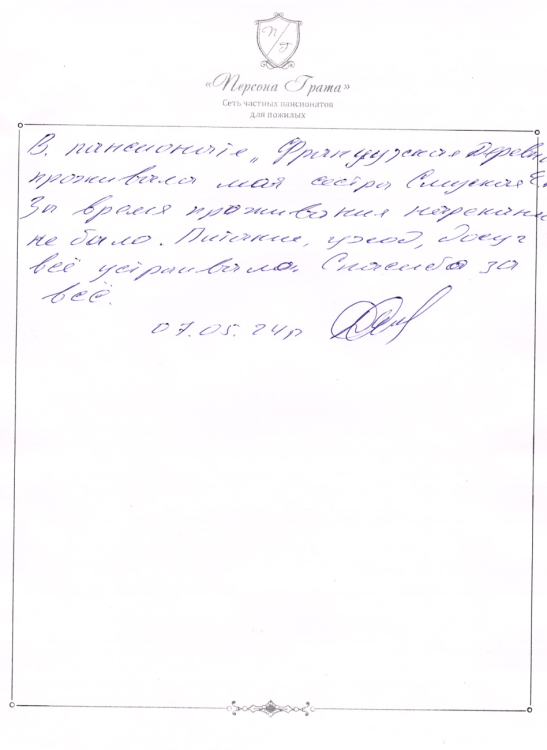 П Г
«Персона Грата»
Сеть частных пансионатов
для пожилых
В. пансионате „Французская Деревн
проживала мая сестра
За время проживания нарекани
не было. Питание, уход, досуг
всё устраивало. Спасибо за
всё.
07.05.24г